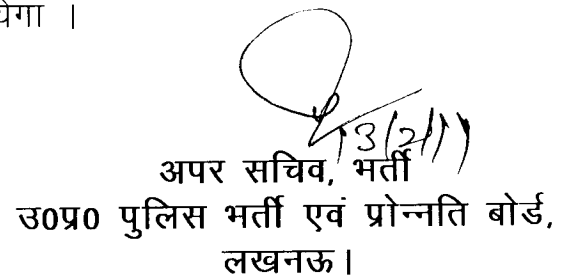 येगा ।
13/2/11
अपर सचिव, भर्ती
उ0प्र0 पुलिस भर्ती एवं प्रोन्नति बोर्ड,
लखनऊ।